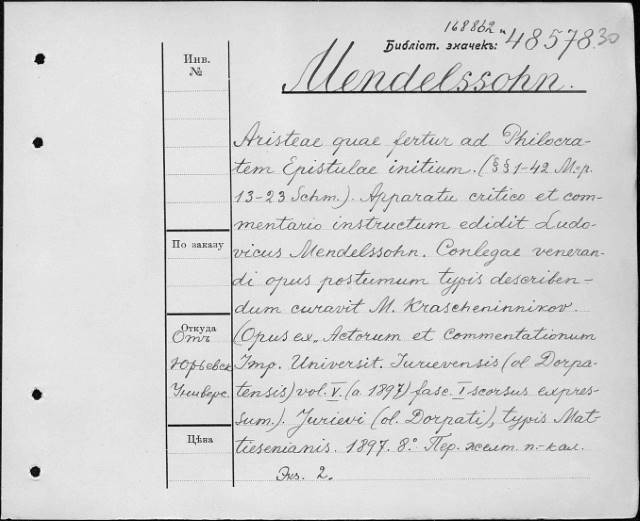 168862 и
Библіот. значекъ: 48578.30
Mendelssohn.
Инв. №
Aristeae quae fertur ad Philocra-
tem Epistulae initium. (§§1-42 M=p.
13-23 Schm.). Apparatu critico et com
mentario instructum edidit Ludo-
vicus Mendelssohn. Conlegae veneran-
di opus postumum typis describen-
dum curavit M. Krascheninnikov.
(Opus ex „Actorum et Commentationum
Imp. Universit. Iurievensis (ol Dorpa-
tensis) vol. V. (a. 1897) fasc. I scorsus expres-
sum.). Jurievi (ol. Dorpati), typis Mat-
tiesenianis. 1897. 8.° Пер. желт. п.-кал.
Экз. 2.
По заказу
Откуда
Отъ
Юрьевск
Универс.
Цѣна